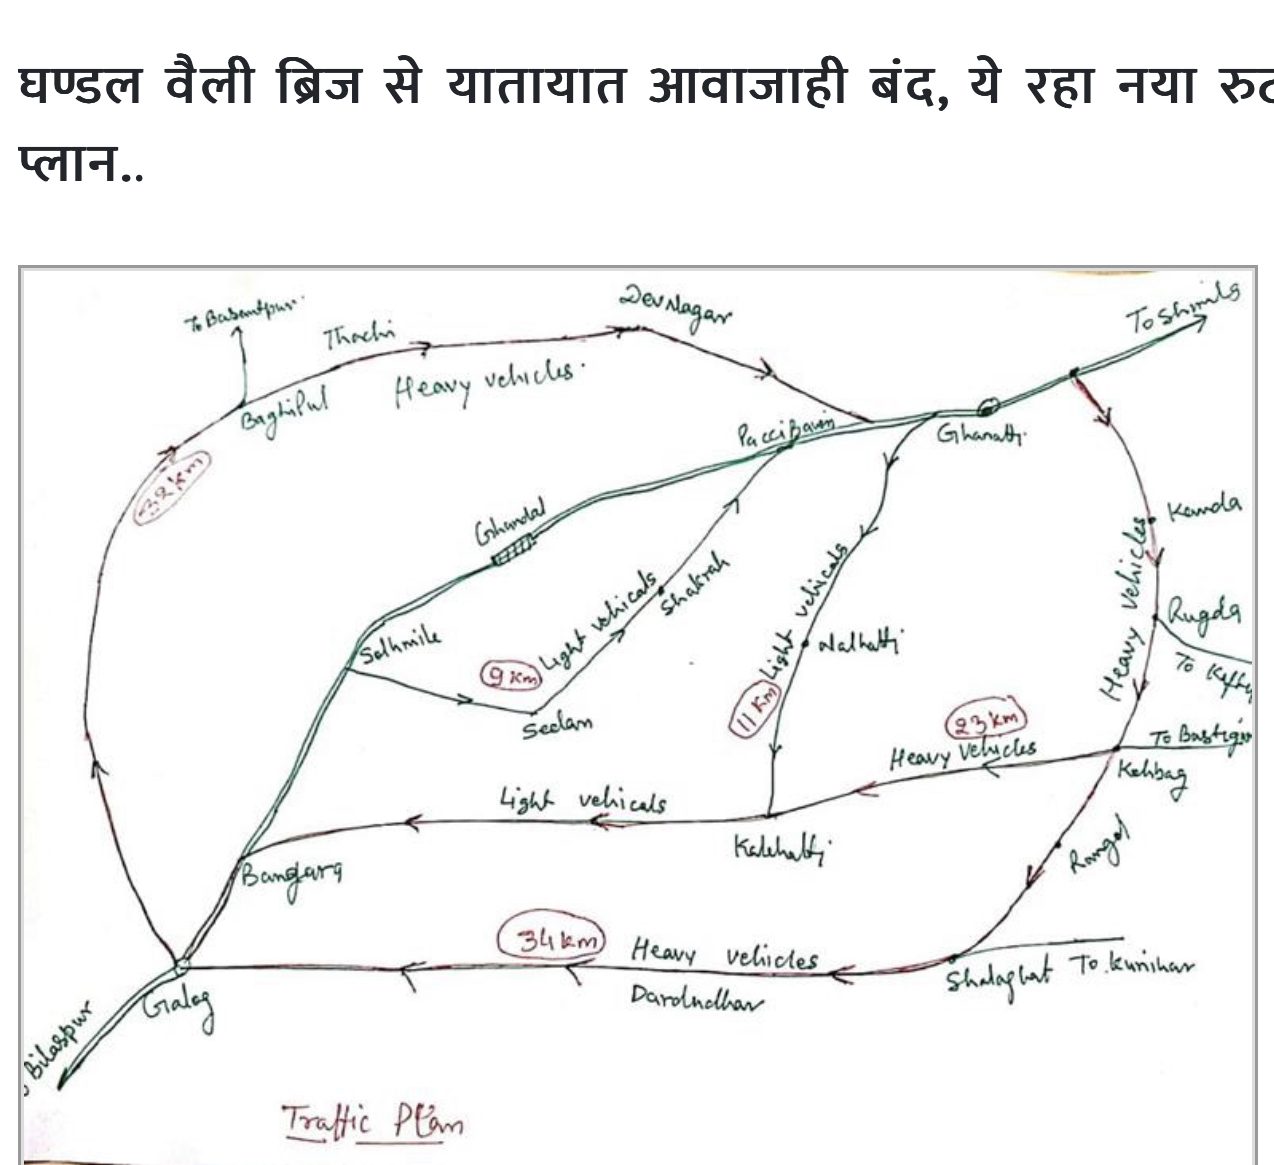 घण्डल वैली ब्रिज से यातायात आवाजाही बंद, ये रहा नया
प्लान..
DevNagar
To Shimla
Thachi
Heavy vehicles.
Baghipul
Pacci Bawri
Ghanatti
32 km
Ghandal
Kanda
Heavy vehicles
Rugda
Light vehicals
Shakrah
Light vehicals
Nalhatti
Salhmile
9 km
Sedan
11 km
23 km
Heavy Vehicles
To
Kehbag
Light vehicals
Kalehatti
Rangol
Bangara
34 km
Heavy vehicles
Shalaghat To Kunihar
Galog
Bilaspur
Traffic Plan